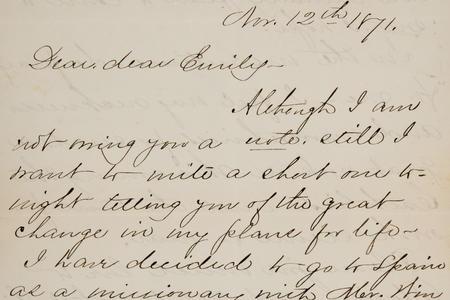 Nov. 12th 1871.
Dear, dear Emily—
Although I am
not owing you a note, still I
want to write a short one to-
night telling you of the great
change in my plans for life—
I have decided to go to Spain
as a missionary with Mrs. Wm